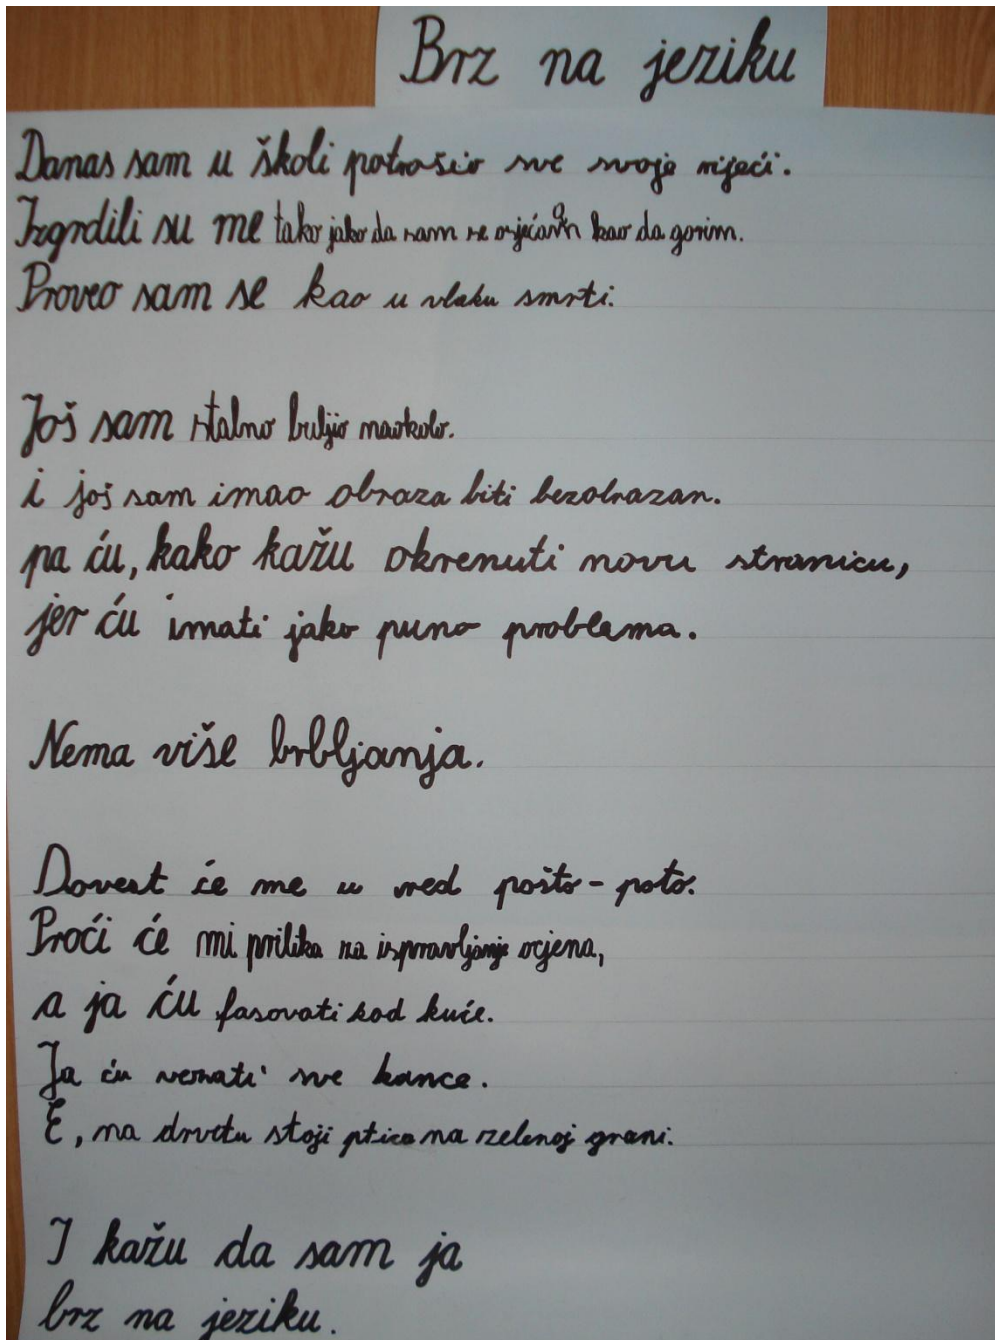 Brz na jeziku
Danas sam u školi potrošio sve svoje riječi.
Izgrdili su me tako jako da sam se osjećao kao da gorim.
Proveo sam se kao u vlaku smrti.
Još sam stalno buljio naokolo.
i još sam imao obraza biti bezobrazan.
pa ću, kako kažu okrenuti novu stranicu,
jer ću imati jako puno problema.
Nema više brbljanja.
Dovest će me u red pošto-poto.
Proći će mi prilika na ispravljanje ocjena,
a ja ću fasovati kod kuće.
Ja ću vezati sve konce.
E, na drvetu stoji ptica na zelenoj grani.
I kažu da sam ja
brz na jeziku.